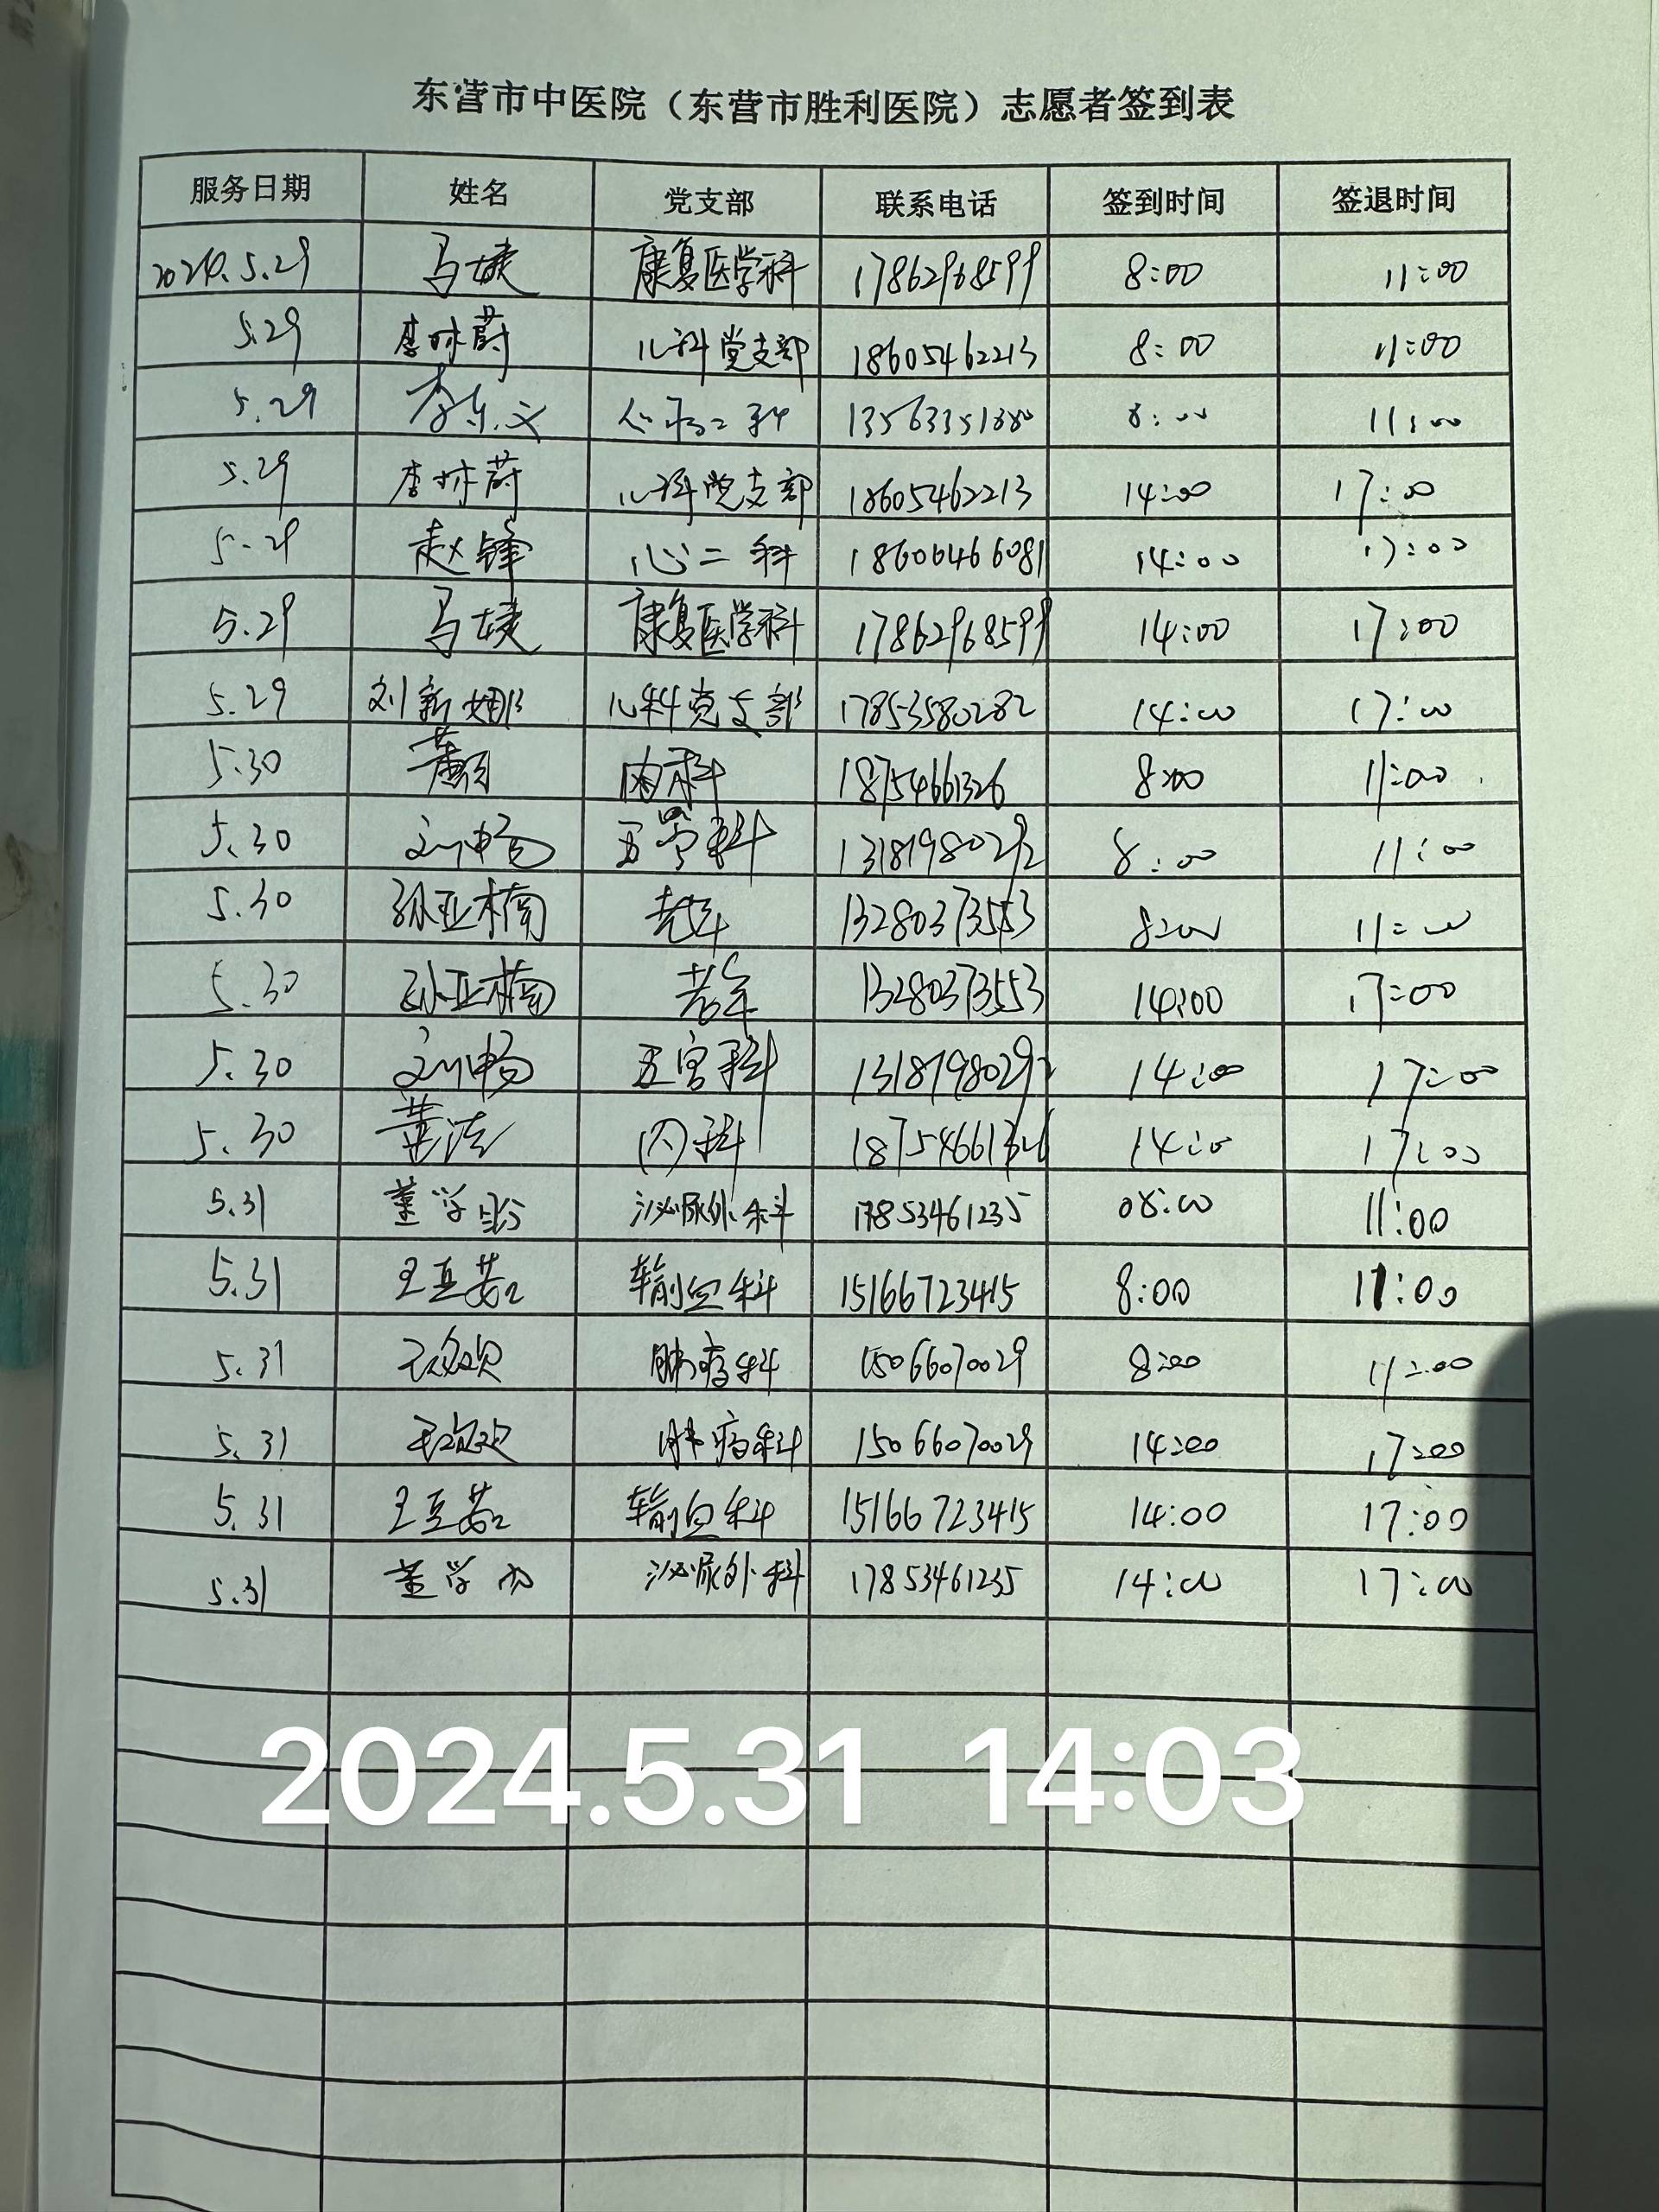 东营市中医院（东营市胜利医院）志愿者签到表
服务日期 姓名 党支部 联系电话 签到时间 签退时间
2024.5.29 马婕 康复医学科 17862968599 8:00 11:00
5.29 李林蔚 儿科党支部 18605462213 8:00 11:00
5.29 李东义 心病二科 13563351880 8:00 11:00
5.29 李林蔚 儿科党支部 18605462213 14:00 17:00
5.29 赵锋 心二科 18606466081 14:00 17:00
5.29 马婕 康复医学科 17862968599 14:00 17:00
5.29 刘新娜 儿科党支部 17853580282 14:00 17:00
5.30 内科 18754661326 8:00 11:00
5.30 刘畅 五官科 13181980292 8:00 11:00
5.30 孙亚楠 老年 13280373553 8:00 11:00
5.30 孙亚楠 老年 13280373553 14:00 17:00
5.30 刘畅 五官科 13181980292 14:00 17:00
5.30 内科 18754661326 14:00 17:00
5.31 董学 泌尿外科 17853461235 08:00 11:00
5.31 王豆蔻 输血科 15166723415 8:00 11:00
5.31 肺病科 15066070029 8:00 11:00
5.31 肺病科 15066070029 14:00 17:00
5.31 王豆蔻 输血科 15166723415 14:00 17:00
5.31 董学 泌尿外科 17853461235 14:00 17:00
2024.5.31 14:03